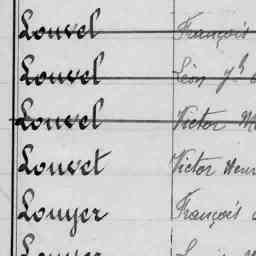 Louvel François
Louvel Léon
Louvel Victor
Louvet Victor Henri
Louyer François
Louyer